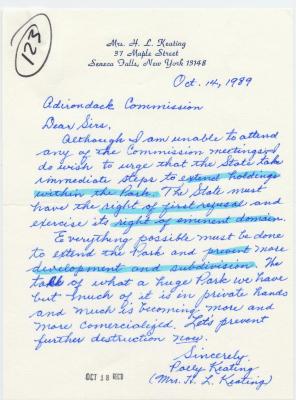 123
Mrs. H. L. Keating
37 Maple Street
Seneca Falls, New York 13148
Oct. 14, 1989
Adirondack Commission
Dear Sirs,
Although I am unable to attend
any of the Commission meetings I
do wish to urge that the State take
immediate steps to extend holdings
within the Park. The State must
have the right of first refusal and
exercise its right of eminent domain.
Everything possible must be done
to extend the Park and prevent more
development and subdivision. We
talk of what a huge Park we have
but much of it is in private hands
and much is becoming more and
more comercialized. Let's prevent
further destruction now.
Sincerely,
Keating
(Mrs. H. L. Keating)
OCT 18 REC'D